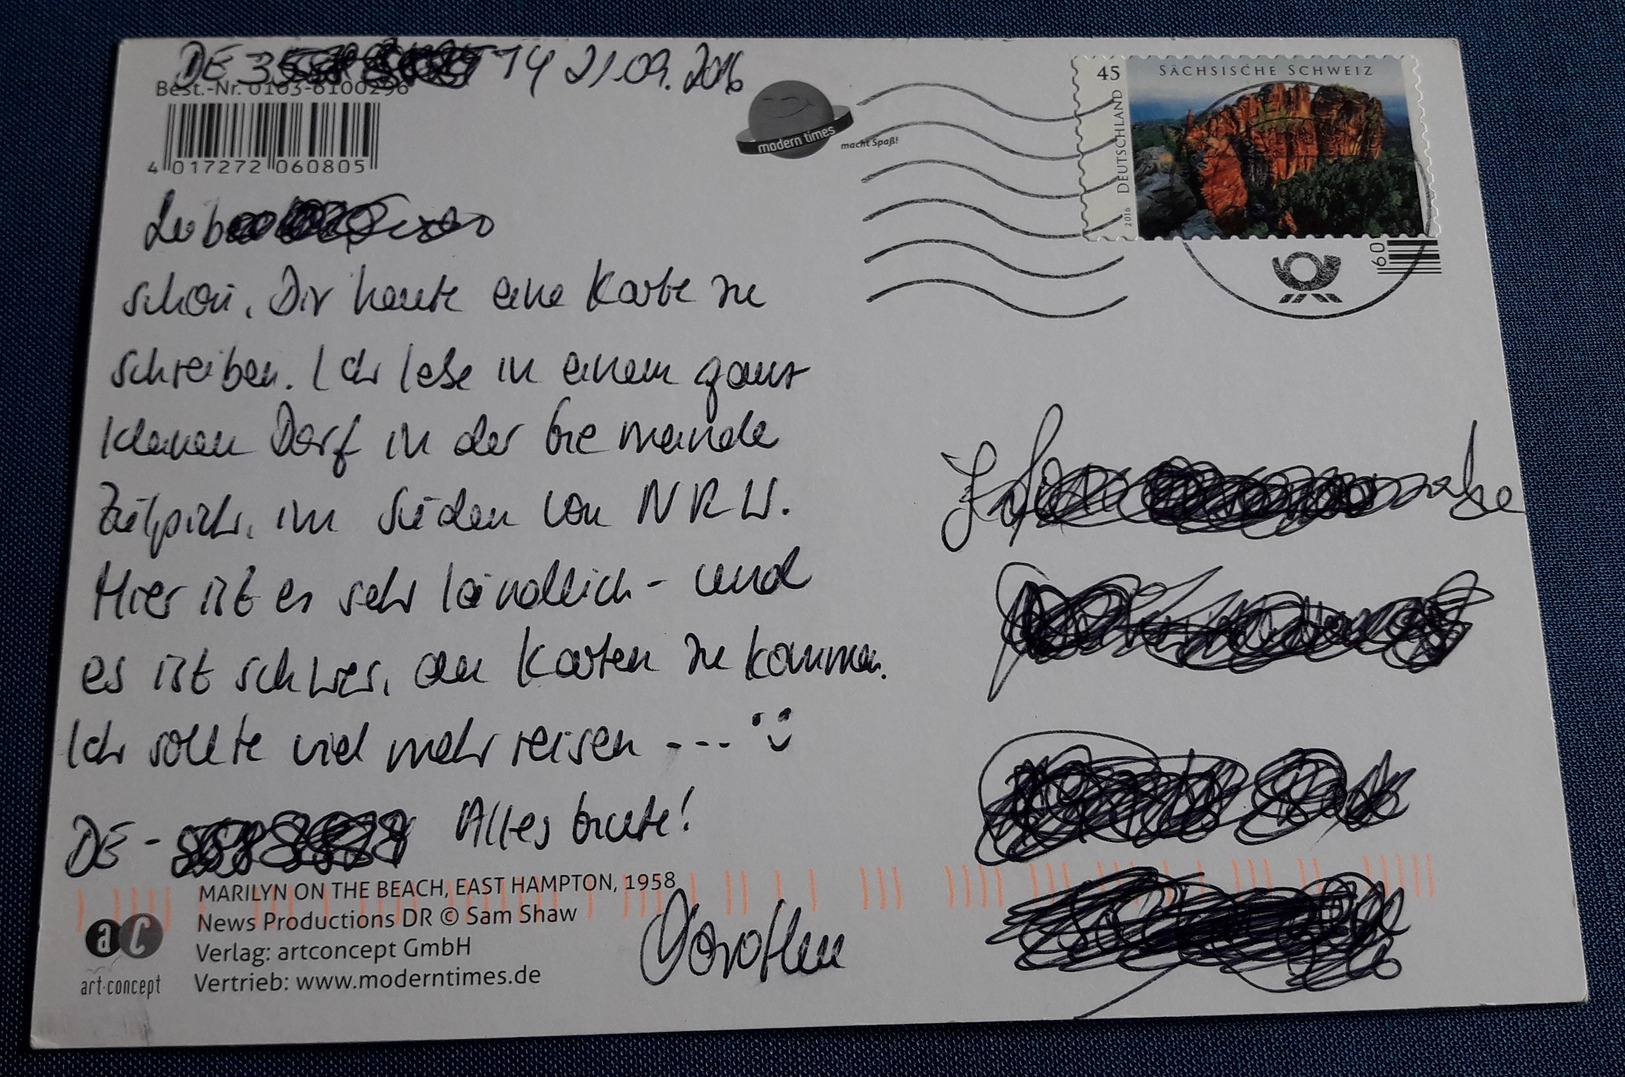 DE 14 21.09.2016
Best.-Nr. 0103-6100296
4 017272 060805
modern times
macht Spaß!
45
SÄCHSISCHE SCHWEIZ
DEUTSCHLAND
2016
60
schön, Dir heute eine Karte zu
schreiben. Ich lebe in einem ganz
kleinen Dorf in der Gemeinde
Zülpich, im Süden von NRW.
Hier ist es sehr ländlich - und
es ist schwer, an Karten zu kommen.
Ich sollte viel mehr reisen --- :)
DE - Alles Gute!
Dorothee
MARILYN ON THE BEACH, EAST HAMPTON, 1958
News Productions DR © Sam Shaw
Verlag: artconcept GmbH
Vertrieb: www.moderntimes.de
ac
art concept